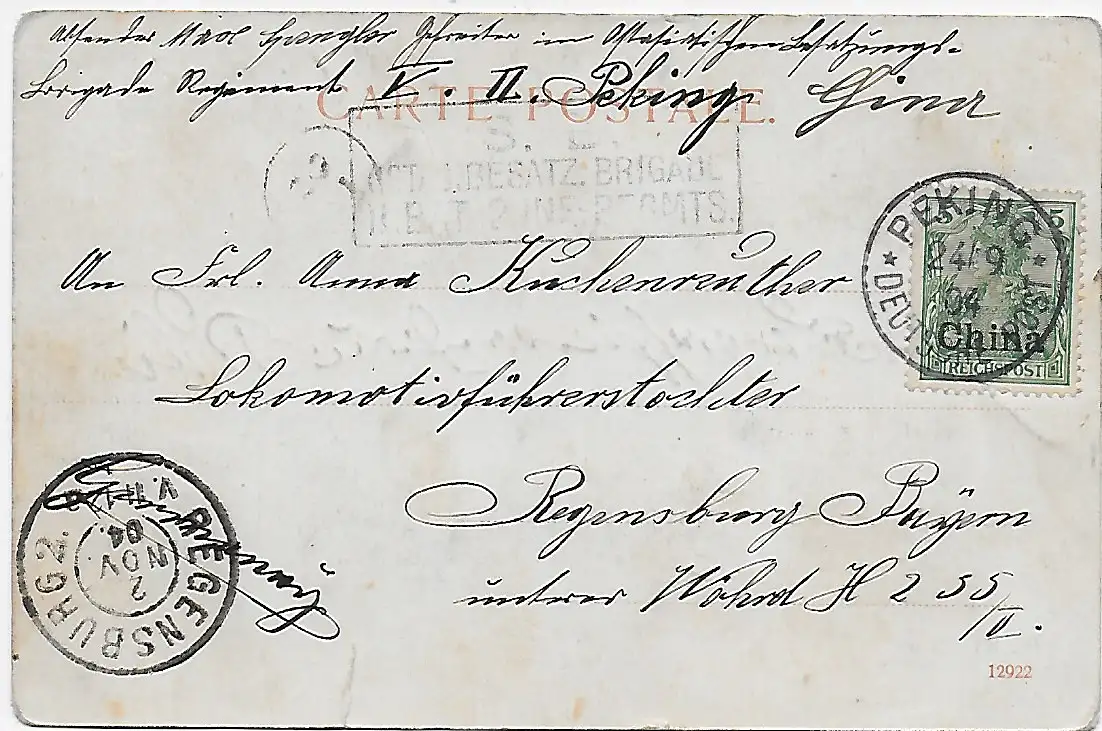 Absender Max Spengler Gefreiter im Ostasiatischen Besatzungs-
Brigade Regiment V. II. Peking China
CARTE POSTALE.
S. B.
BESATZ. BRIGADE
An Frl. Anna Kuchenreuther
Lokomotivführerstochter
Regensburg Bayern
unterer Wöhrd H 255
/II.
PEKING
24/9
04
DEUTSCHE POST
5 5
China
REICHSPOST
REGENSBURG 2.
2
NOV.
04.
12922